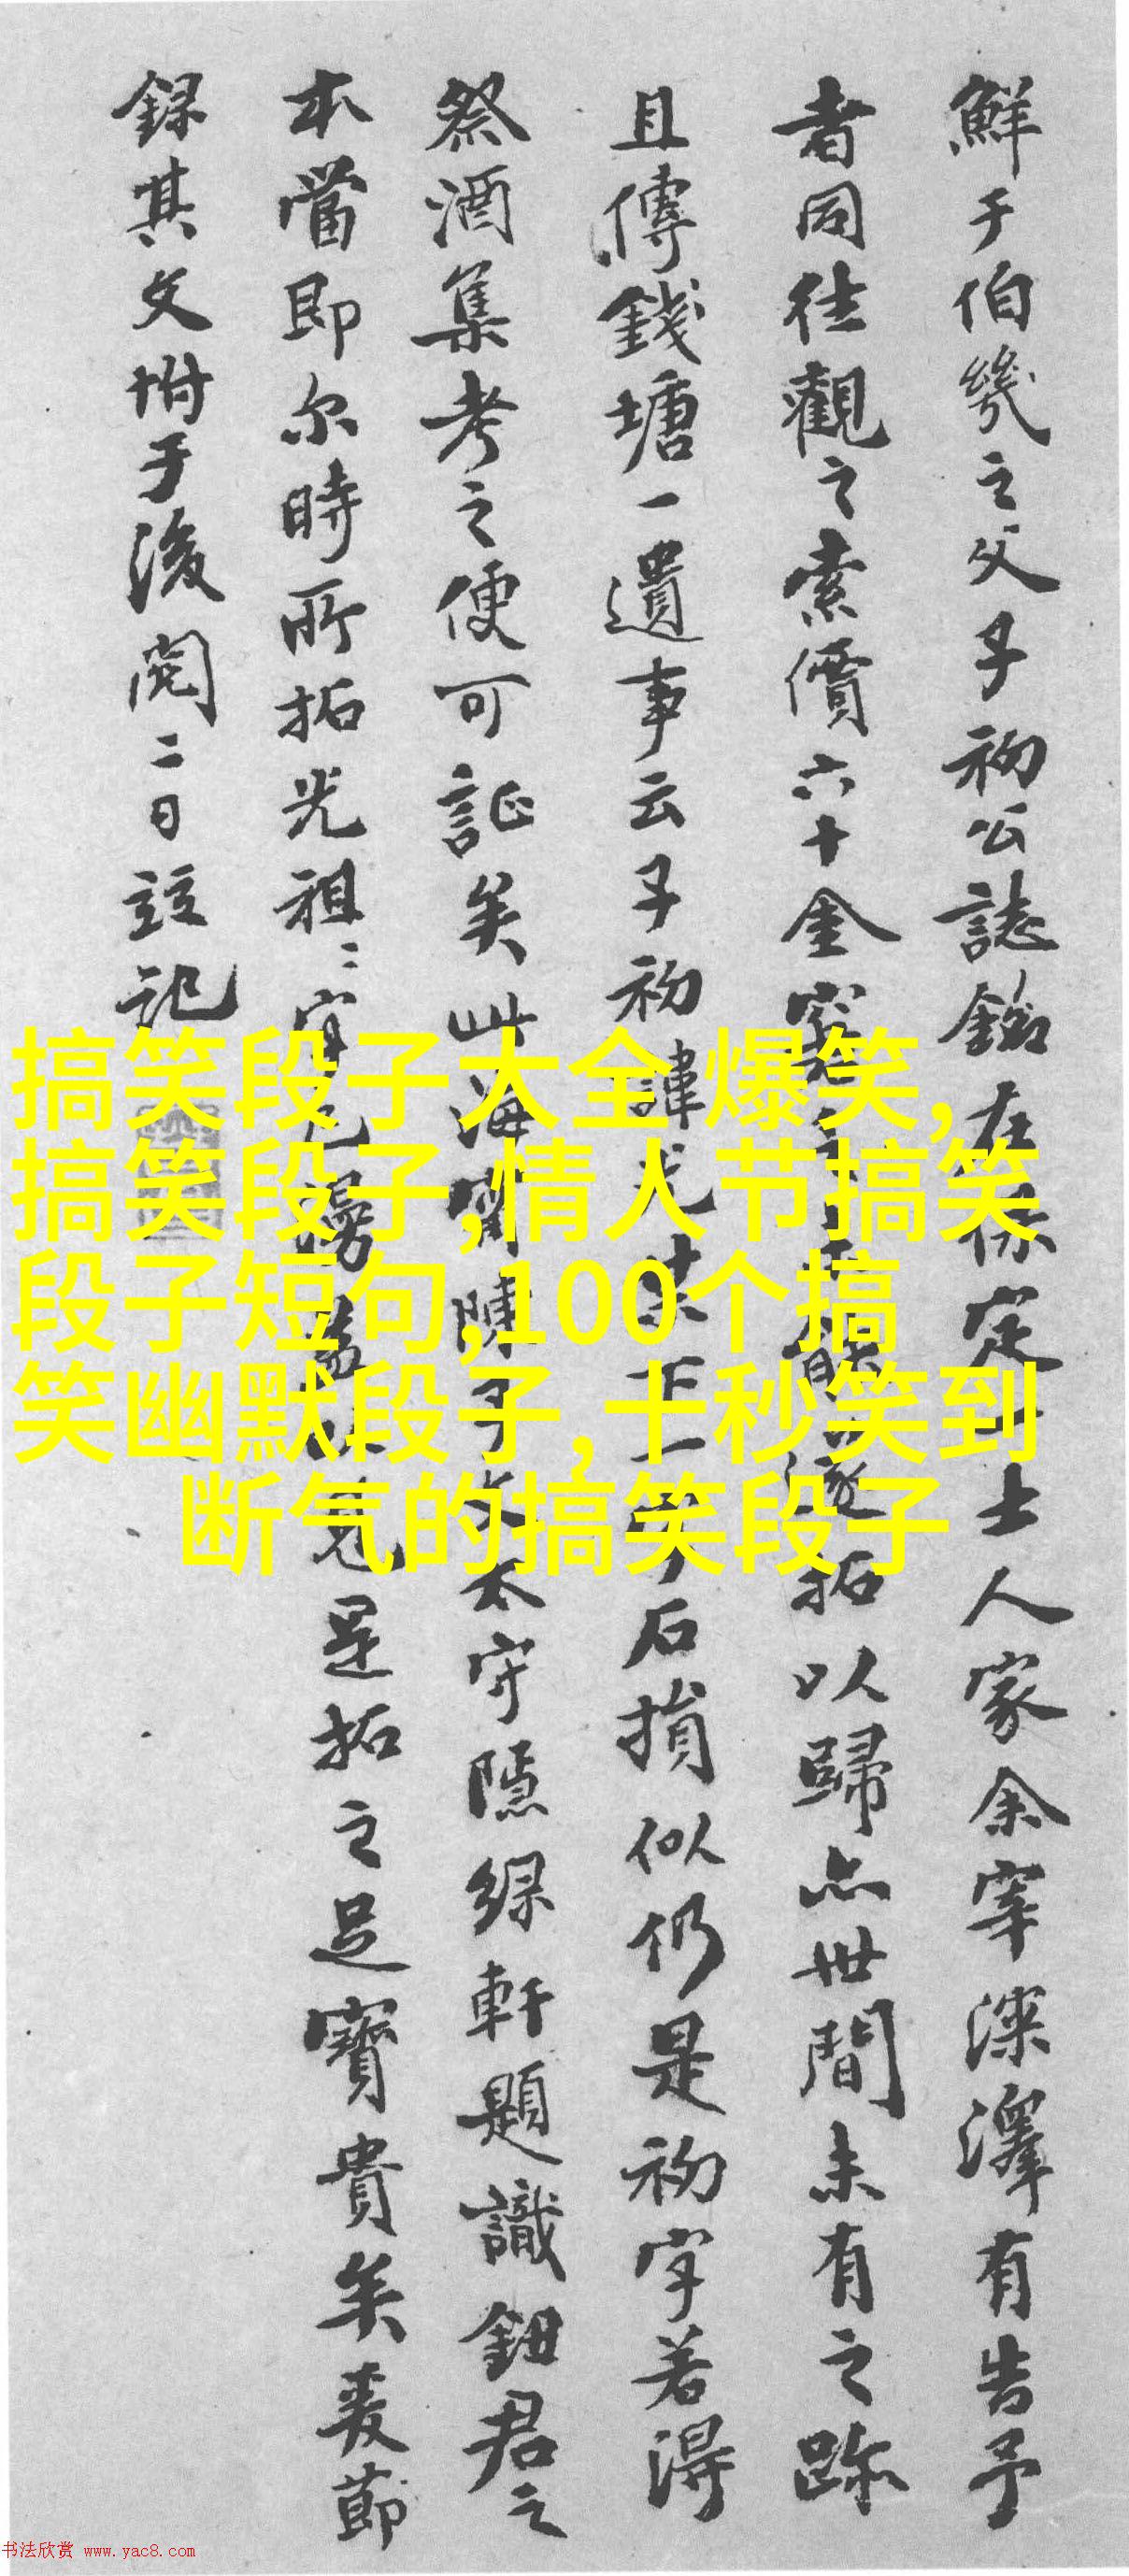 鮮于伯幾之父子初公誌銘在保定一士人家余宰深澤有告予
者同往觀之索價六十金
遂拓以歸亦世間未有之跡
且傳錢塘一遺事云子初諱光
石損似仍是初字若得
祭酒集考之便可証矣此海寧陳子文太守隱綠軒題識鈕君之
本當即尔時所拓光祖
是拓之足寶貴矣爰節
錄其文坿于後閏二日
記
搞笑段子大全 爆笑,
搞笑段子,情人节搞笑
段子短句,100个搞
笑幽默段子,十秒笑到
断气的搞笑段子
书法欣赏 www.yac8.com